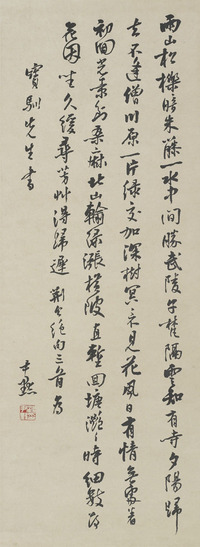 兩山松櫟暗朱藤一水中間勝武陵午梵隔雲知有寺夕陽歸
去不逢僧川原一片綠交加深樹冥冥不見花風日有情無處著
初回光景到桑麻北山輸綠漲橫陂直塹回塘灧灧時細數落
花因坐久緩尋芳艸得歸遲 荆公絕句三首為
寶馴先生書
尹默